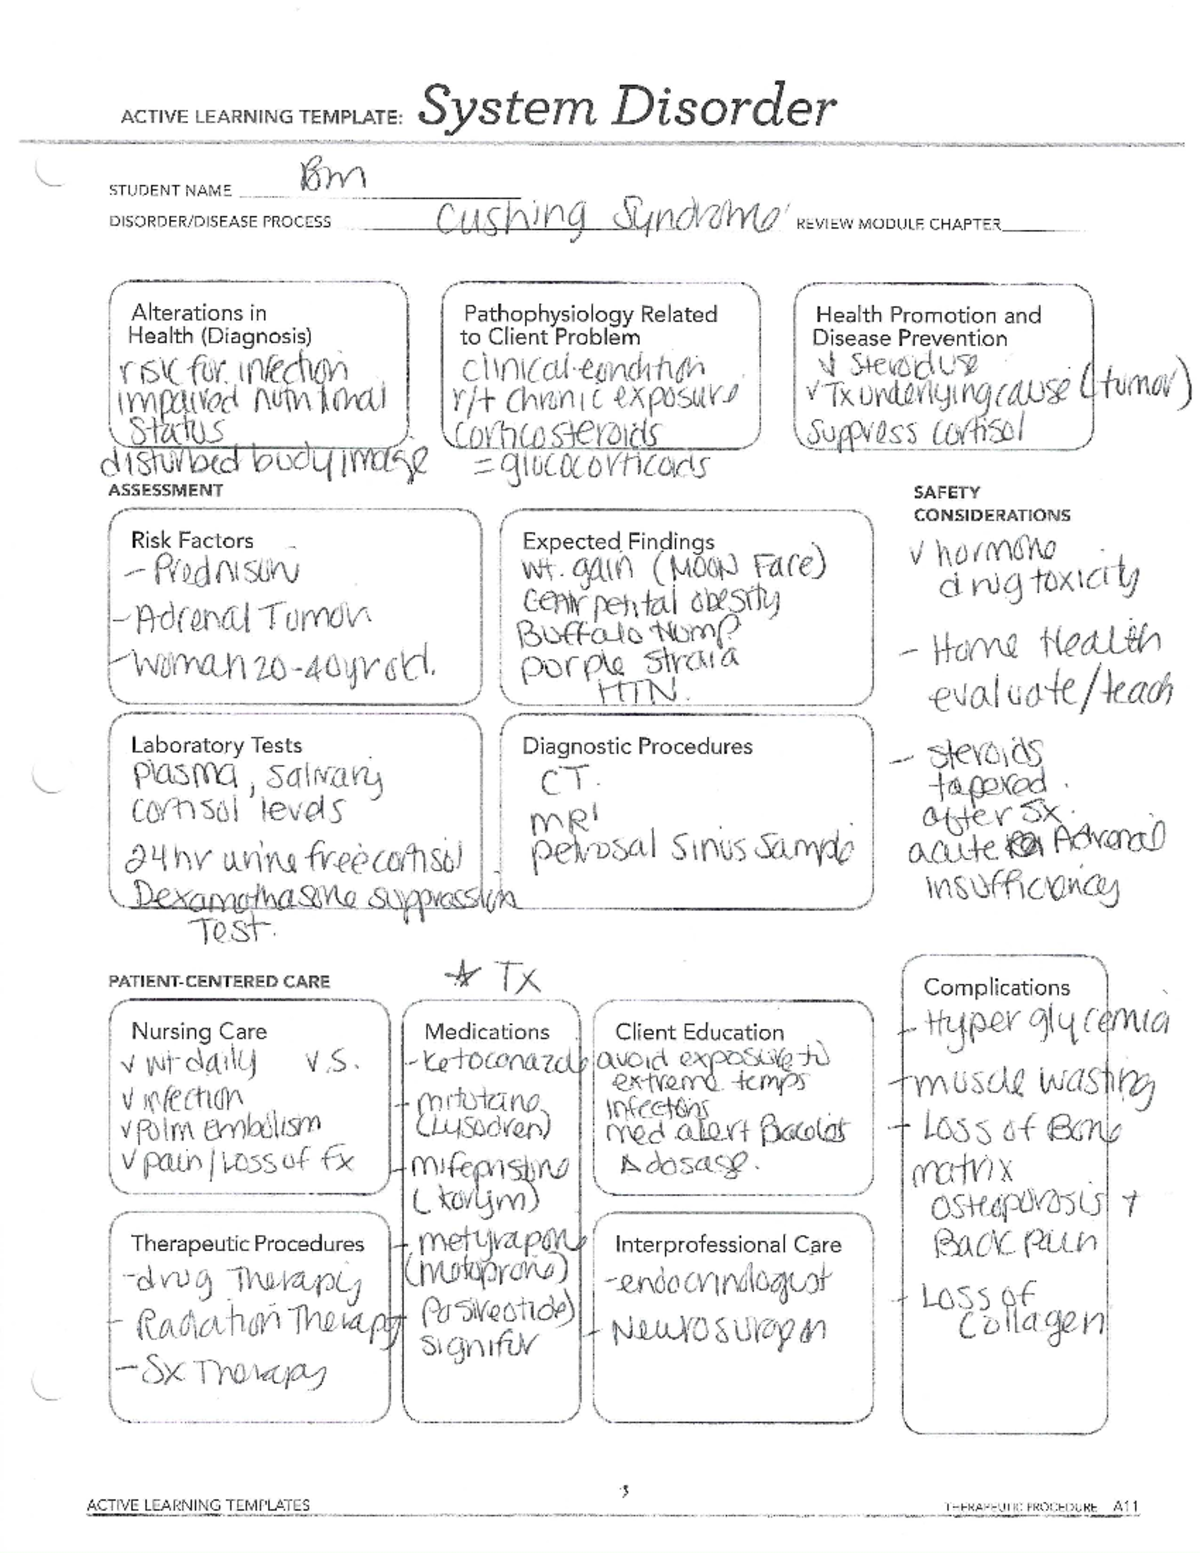 ACTIVE LEARNING TEMPLATE: System Disorder
STUDENT NAME Bm
DISORDER/DISEASE PROCESS Cushing Syndrome REVIEW MODULE CHAPTER
Alterations in
Health (Diagnosis)
risk for infection
impaired nutritional
Status
disturbed body image
Pathophysiology Related
to Client Problem
clinical condition
r/t chronic exposure
corticosteroids
= glucocorticoids
Health Promotion and
Disease Prevention
↓ Steroid use
√ Tx underlying cause (tumor)
suppress cortisol
ASSESSMENT
Risk Factors
- Prednison
- Adrenal Tumor
- Woman 20-40 yr old.
Expected Findings
wt. gain (Moon Face)
centripetal obesity
Buffalo Hump
purple straia
HTN.
Laboratory Tests
plasma, salivary
cortisol levels
24 hr urine free cortisol
Dexamethasone suppression
Test.
Diagnostic Procedures
CT.
MRI
petrosal sinus sample
SAFETY
CONSIDERATIONS
√ hormone
drug toxicity
- Home Health
evaluate/teach
- steroids
tapered.
after Sx.
acute Adrenal
insufficiency
PATIENT-CENTERED CARE
☆ Tx
Nursing Care
√ wt daily V.S.
√ infection
√ pulm Embolism
√ pain/Loss of fx
Medications
- Ketoconazole
- mitotane
(Lysodren)
- mifepristone
(korlym)
- metyrapone
(metoprone)
Pasireotide)
signifor
Client Education
avoid exposure to
extreme temps
infections
med alert Bracelet
Δ dosage.
Therapeutic Procedures
- drug Therapy
- Radiation Therapy
- Sx Therapy
Interprofessional Care
- endocrinologist
- Neurosurgeon
Complications
- Hyperglycemia
- muscle wasting
- Loss of Bone
matrix
osteoporosis +
Back pain
- Loss of
collagen
ACTIVE LEARNING TEMPLATES
THERAPEUTIC PROCEDURE A11